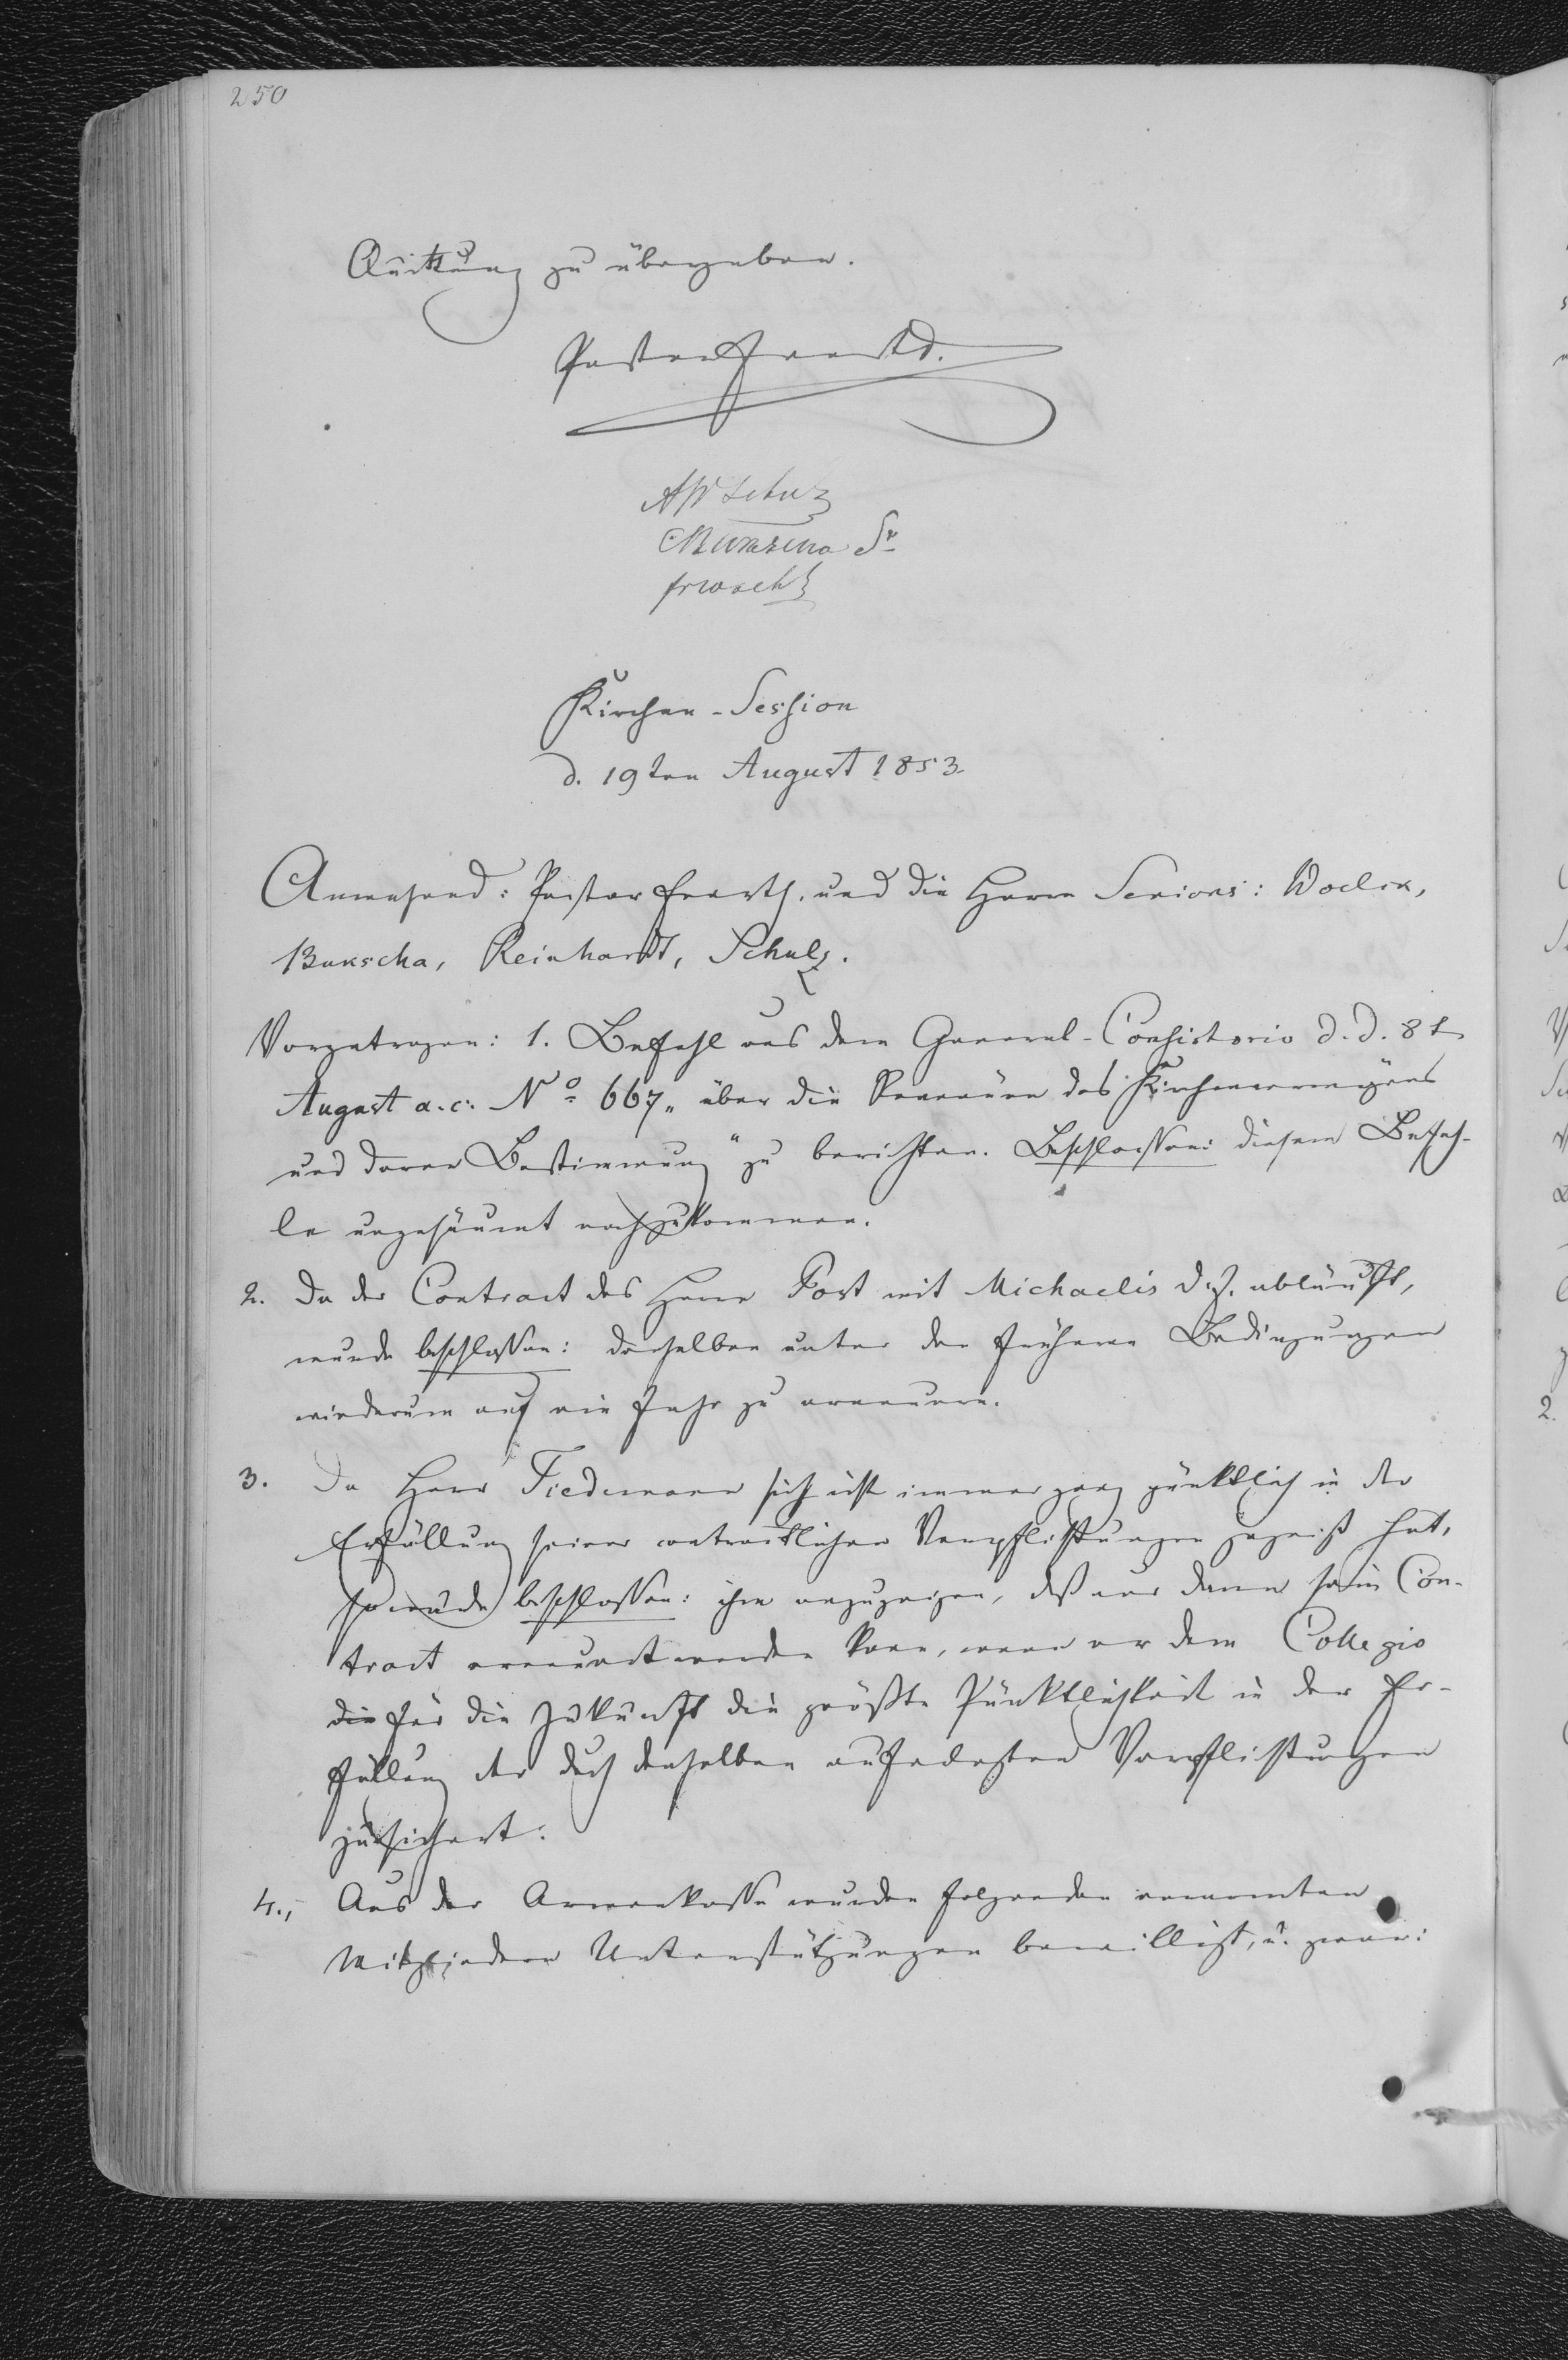 250
Quittung zu übergeben.
Pastor
AW Schulz
Sr
Kirchen-Session
d. 19ten August 1853.
Anwesend: Pastor und die Herrn Seniors:
Bukscha, Reinhardt, Schulz.
Vorgetragen: 1. Befehl aus dem General-Consistorio d. d. 8t
August a. c. No 667 „über die Revenüen des Kirchenvermögens
und deren Bestimmung“ zu berichten. Beschlossen: diesem Befeh-
le ungesäumt nachzukommen.
2. Da der Contract des Herrn Post mit Michaelis d. J. abläuft,
wurde beschlossen: denselben unter den früheren Bedingungen
wiederum auf ein Jahr zu erneuern.
3. Da Herr Tiedemann sich nicht immer ganz pünktlich in der
Erfüllung seiner contractlichen Verpflichtungen hat,
so wurde beschlossen: ihm anzuzeigen, daß nur dann sein Con-
tract erneuert werden kann, wenn er dem Collegio
die für die Zukunft die größte Pünktlichkeit in der Er-
füllung der durch denselben auferlegten Verpflichtungen
zusichert.
4., Aus der Armenkasse wurden folgenden verarmten
Mitgliedern Unterstützungen bewilligt, u. zwar: